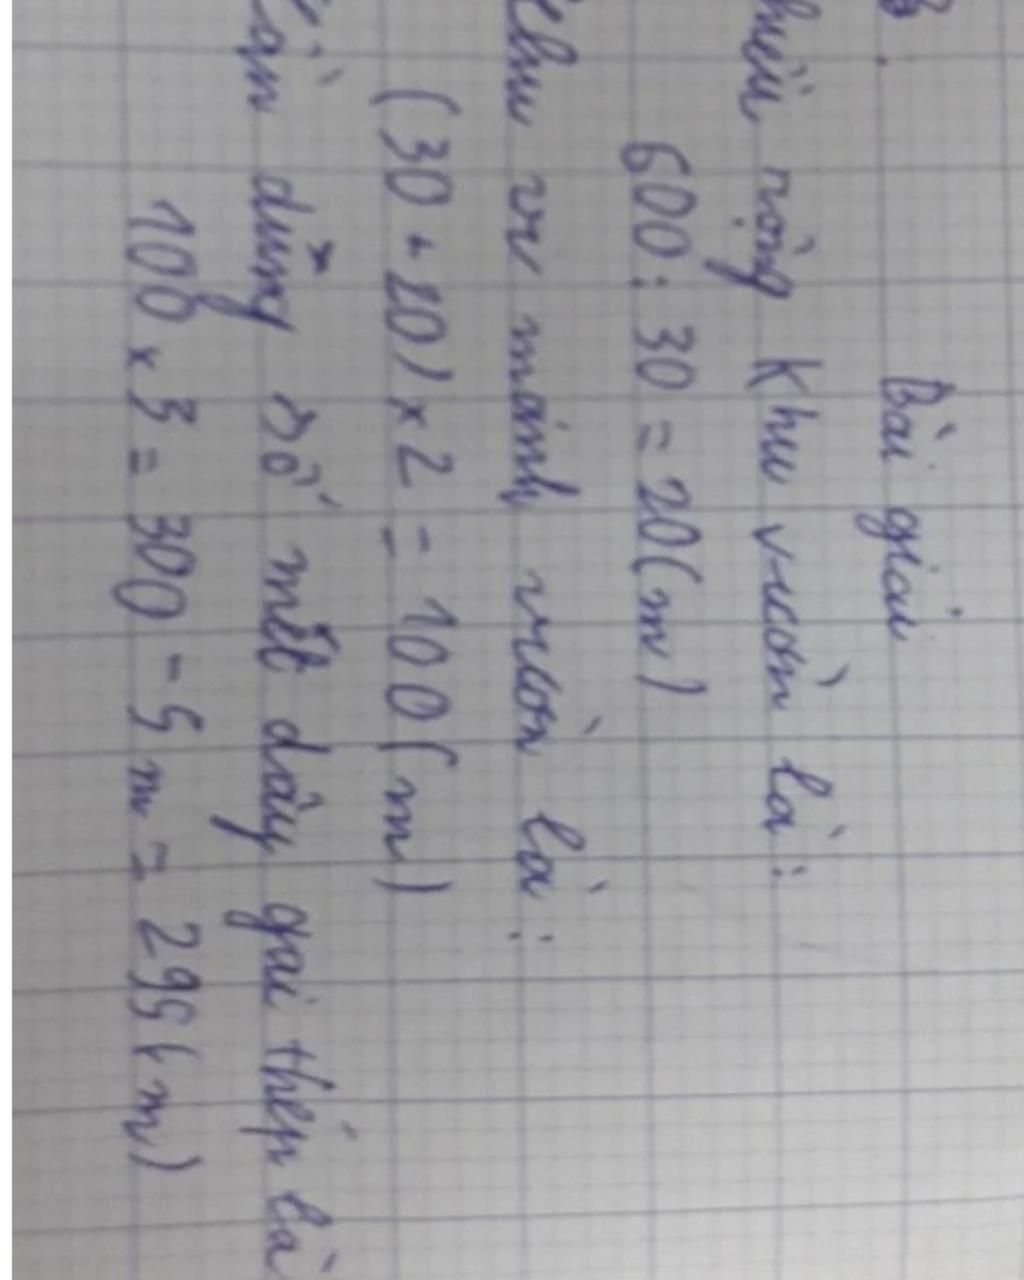 B.
Bài giải
hiều rộng khu vườn là:
600 : 30 = 20 (m)
Chu vi mảnh vườn là:
(30 + 20) x 2 = 100 (m)
Cần dùng số mét dây gai thép là
100 x 3 = 300 - 5 m = 295 (m)